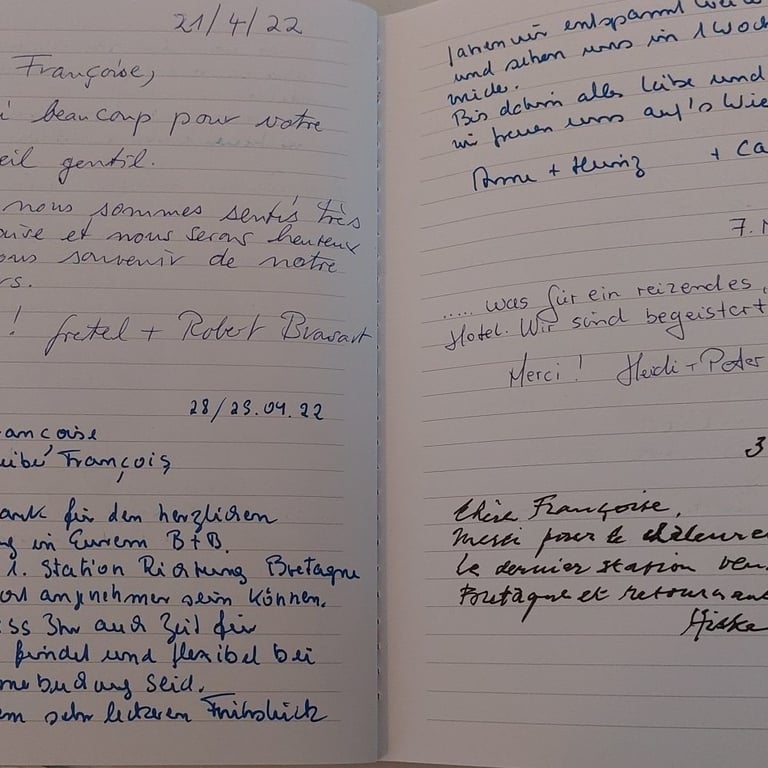 21/4/22
Françoise,
beaucoup pour votre
eil gentil.
nous sommes sentis très
et nous serons heureux
ous souvenir de notre
rs.
! Gretel + Robert
28/29.04.22
ancoise
François
ank für den herzlichen
ng in Eurem B+B.
1. Station Richtung Bretagne
angenehmer sein können.
ss Ihr auch Zeit für
findet und flexibel bei
seid.
em sehr leckeren Frühstück
wir entspannt
und sehen uns in 1 Woch
Bis dahin alles Liebe und
wir freuen uns auf's Wie
Anne + Heinz + Ca
7. M
..... was für ein reizendes,
Hotel. Wir sind begeistert
Merci! Heidi + Peter
3
Chère Françoise,
Merci pour le chaleure
le dernier station
Bretagne et retournant